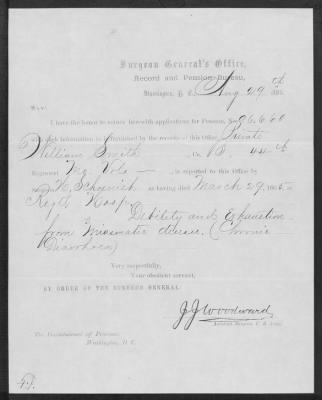 Surgeon General's Office,
Record and Pension Bureau,
Washington, D. C. Aug 29th 186
Sir:
I have the honor to return herewith applications for Pension, No 96660
with such information as is furnished by the records of this Office. Private
William Smith Co. B, 44th
Regiment Vols is reported to this Office by
as having died March 29, 1865, in
Regtl Hosp Debility and Exhaustion
from Miasmatic disease. (Chronic
Diarrhoea)
Very respectfully,
Your obedient servant,
BY ORDER OF THE SURGEON GENERAL
J J Woodward
Assistant Surgeon U. S. Army.
The Commissioner of Pensions,
Washington, D. C.